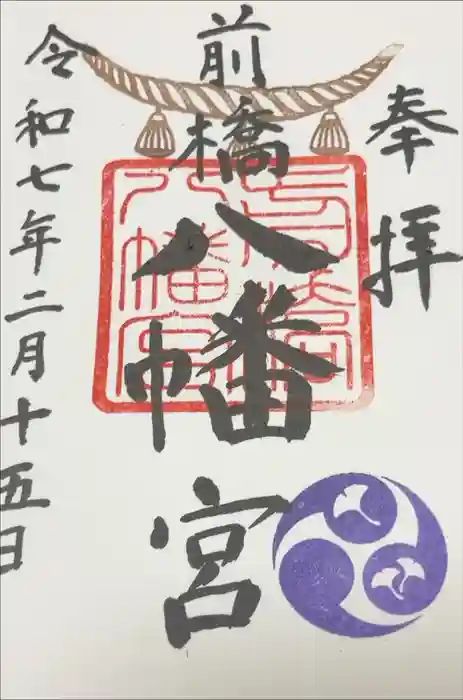 奉拝
前橋
八幡宮
令和七年二月十五日